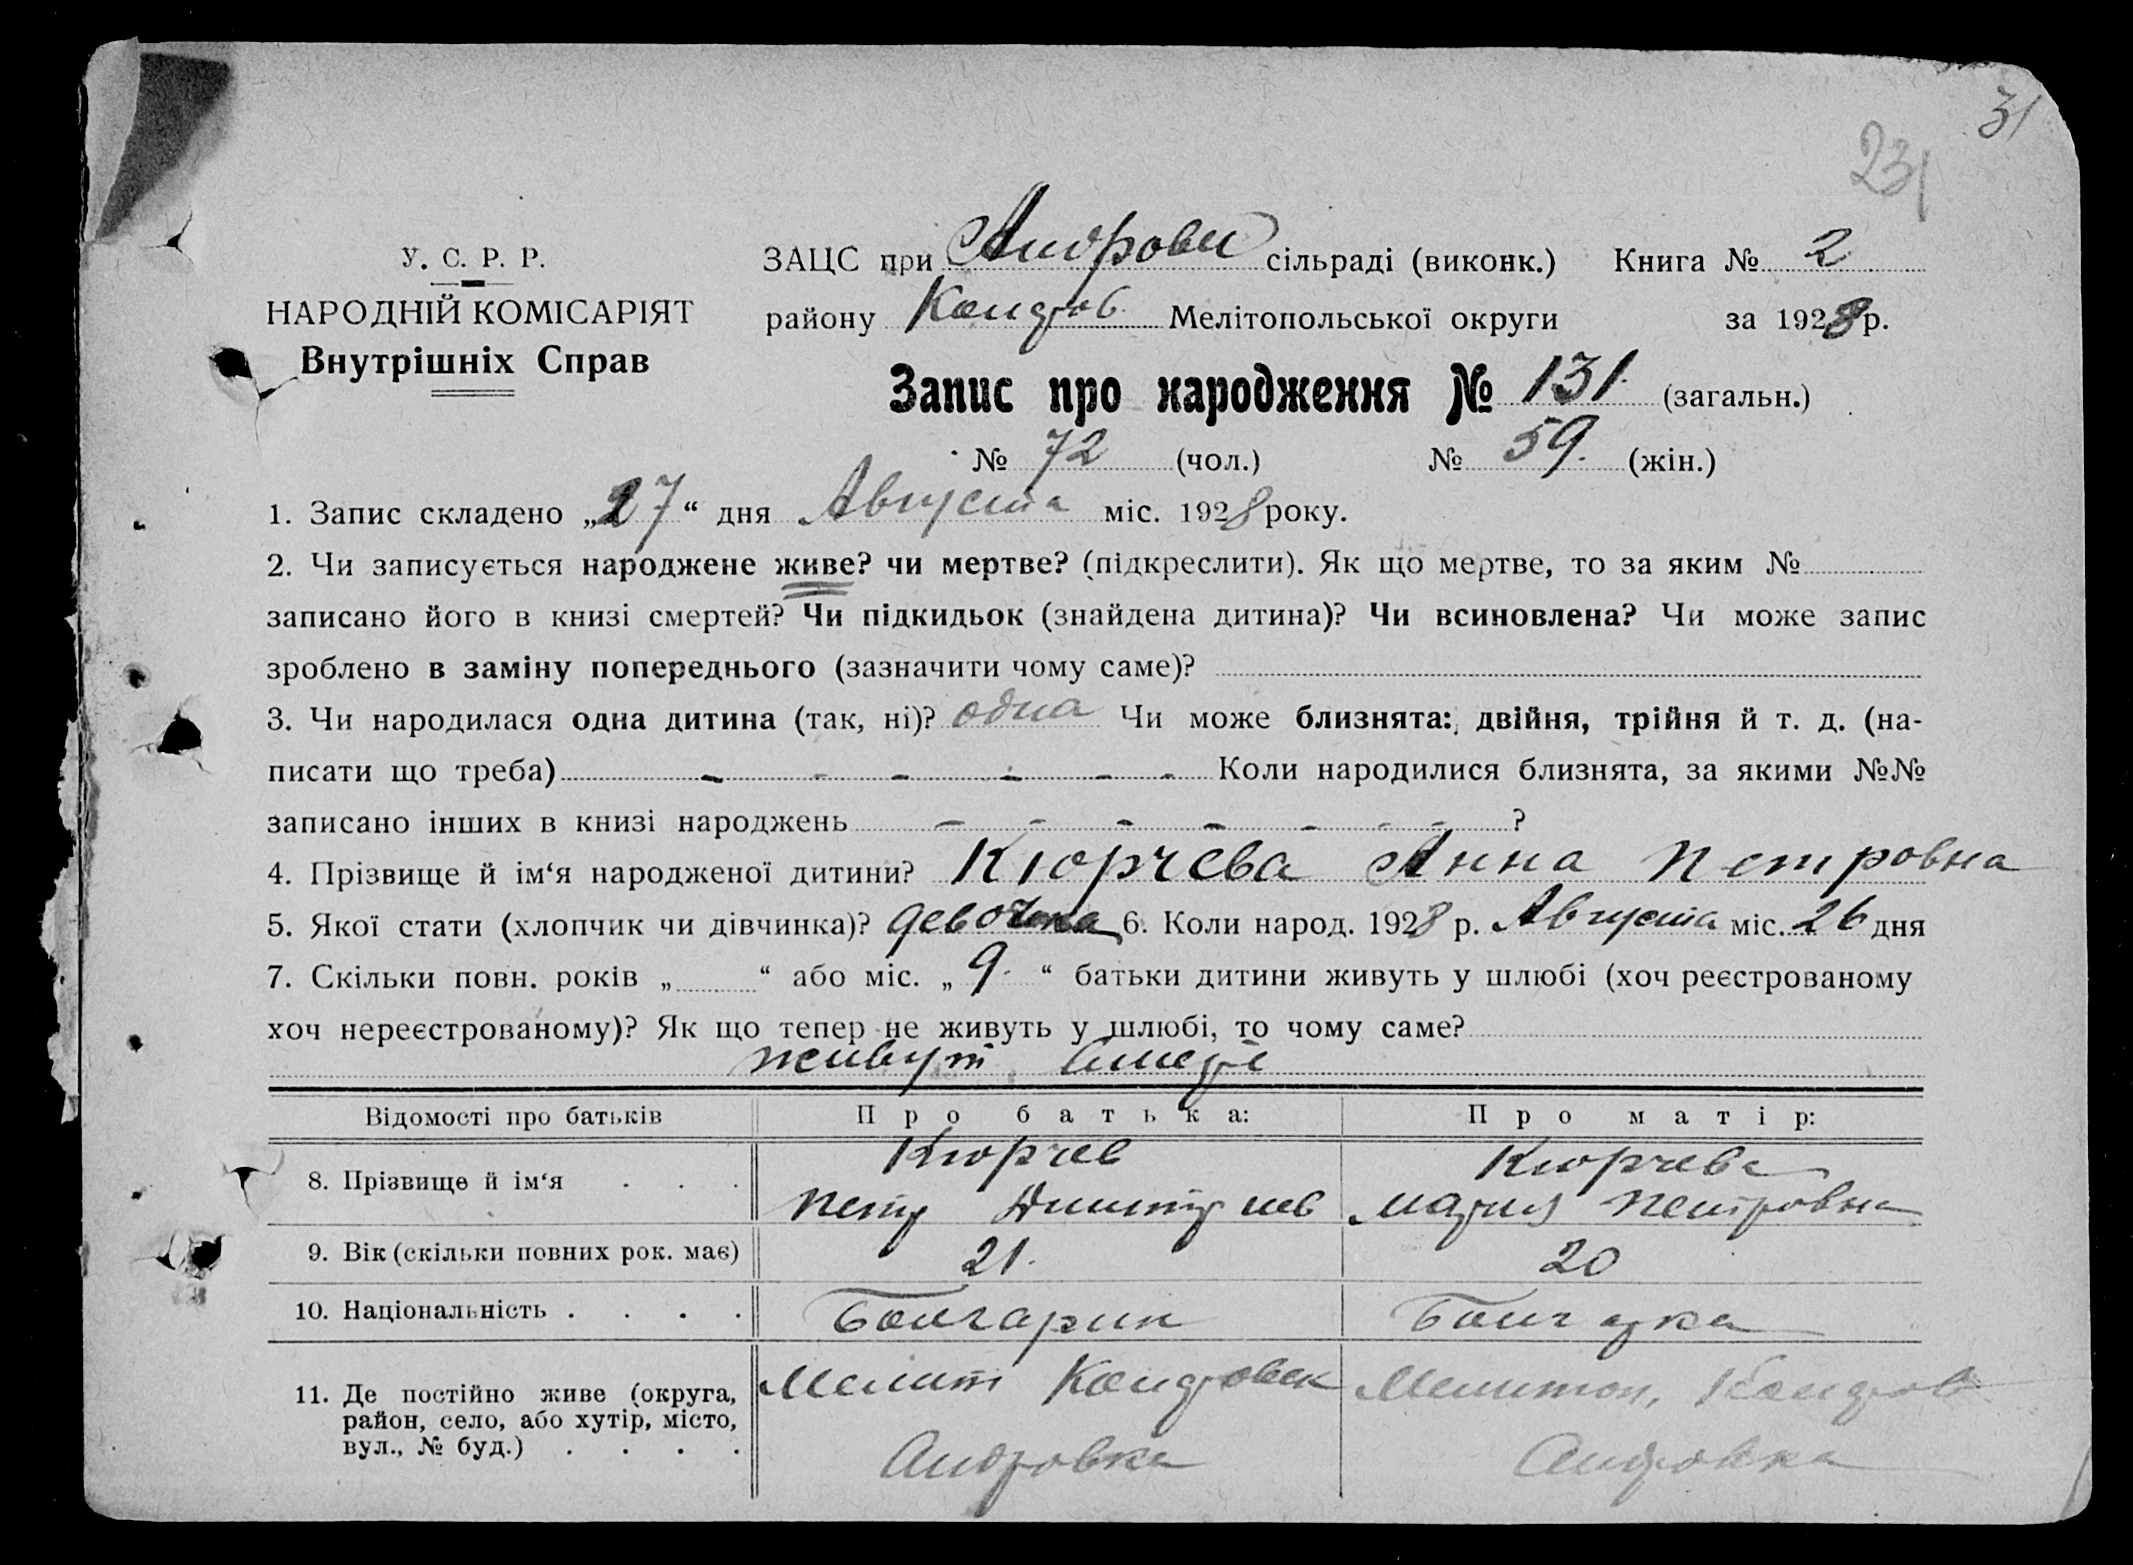 31
231
У. С. Р. Р.
НАРОДНІЙ КОМІСАРІЯТ
Внутрішніх Справ
ЗАЦС при Андрови сільраді (виконк.) Книга № 2
району Коларов Мелітопольської округи за 1928 р.
Запис про народження № 131 (загальн.)
№ 72 (чол.) № 59. (жін.)
1. Запис складено „27“ дня Августа міс. 1928 року.
2. Чи записується народжене живе? чи мертве? (підкреслити). Як що мертве, то за яким №
записано його в книзі смертей? Чи підкидьок (знайдена дитина)? Чи всиновлена? Чи може запис
зроблено в заміну попереднього (зазначити чому саме)?
3. Чи народилася одна дитина (так, ні)? одна Чи може близнята: двійня, трійня й т. д. (на-
писати що треба) - - - - - - Коли народилися близнята, за якими №№
записано інших в книзі народжень - - - - - - - ?
4. Прізвище й ім‘я народженої дитини? Кюрчева Анна Петровна
5. Якої стати (хлопчик чи дівчинка)? девочка 6. Коли народ. 1928 р. Августа міс. 26 дня
7. Скільки повн. років „ “ або міс. „ 9. “ батьки дитини живуть у шлюбі (хоч реєстрованому
хоч нереєстрованому)? Як що тепер не живуть у шлюбі, то чому саме?
живут
Відомості про батьків Про батька: Про матір:
8. Прізвище й ім‘я . . . Кюрчев Кюрчева
Петр Дмитриев Мария Петровна
9. Вік (скільки повних рок. має) 21. 20
10. Національність . . . . Болгарин Болгарка
11. Де постійно живе (округа, район, село, або хутір, місто, вул., № буд.) . . . . Мелит Мелитоп,
Андровка Андровка